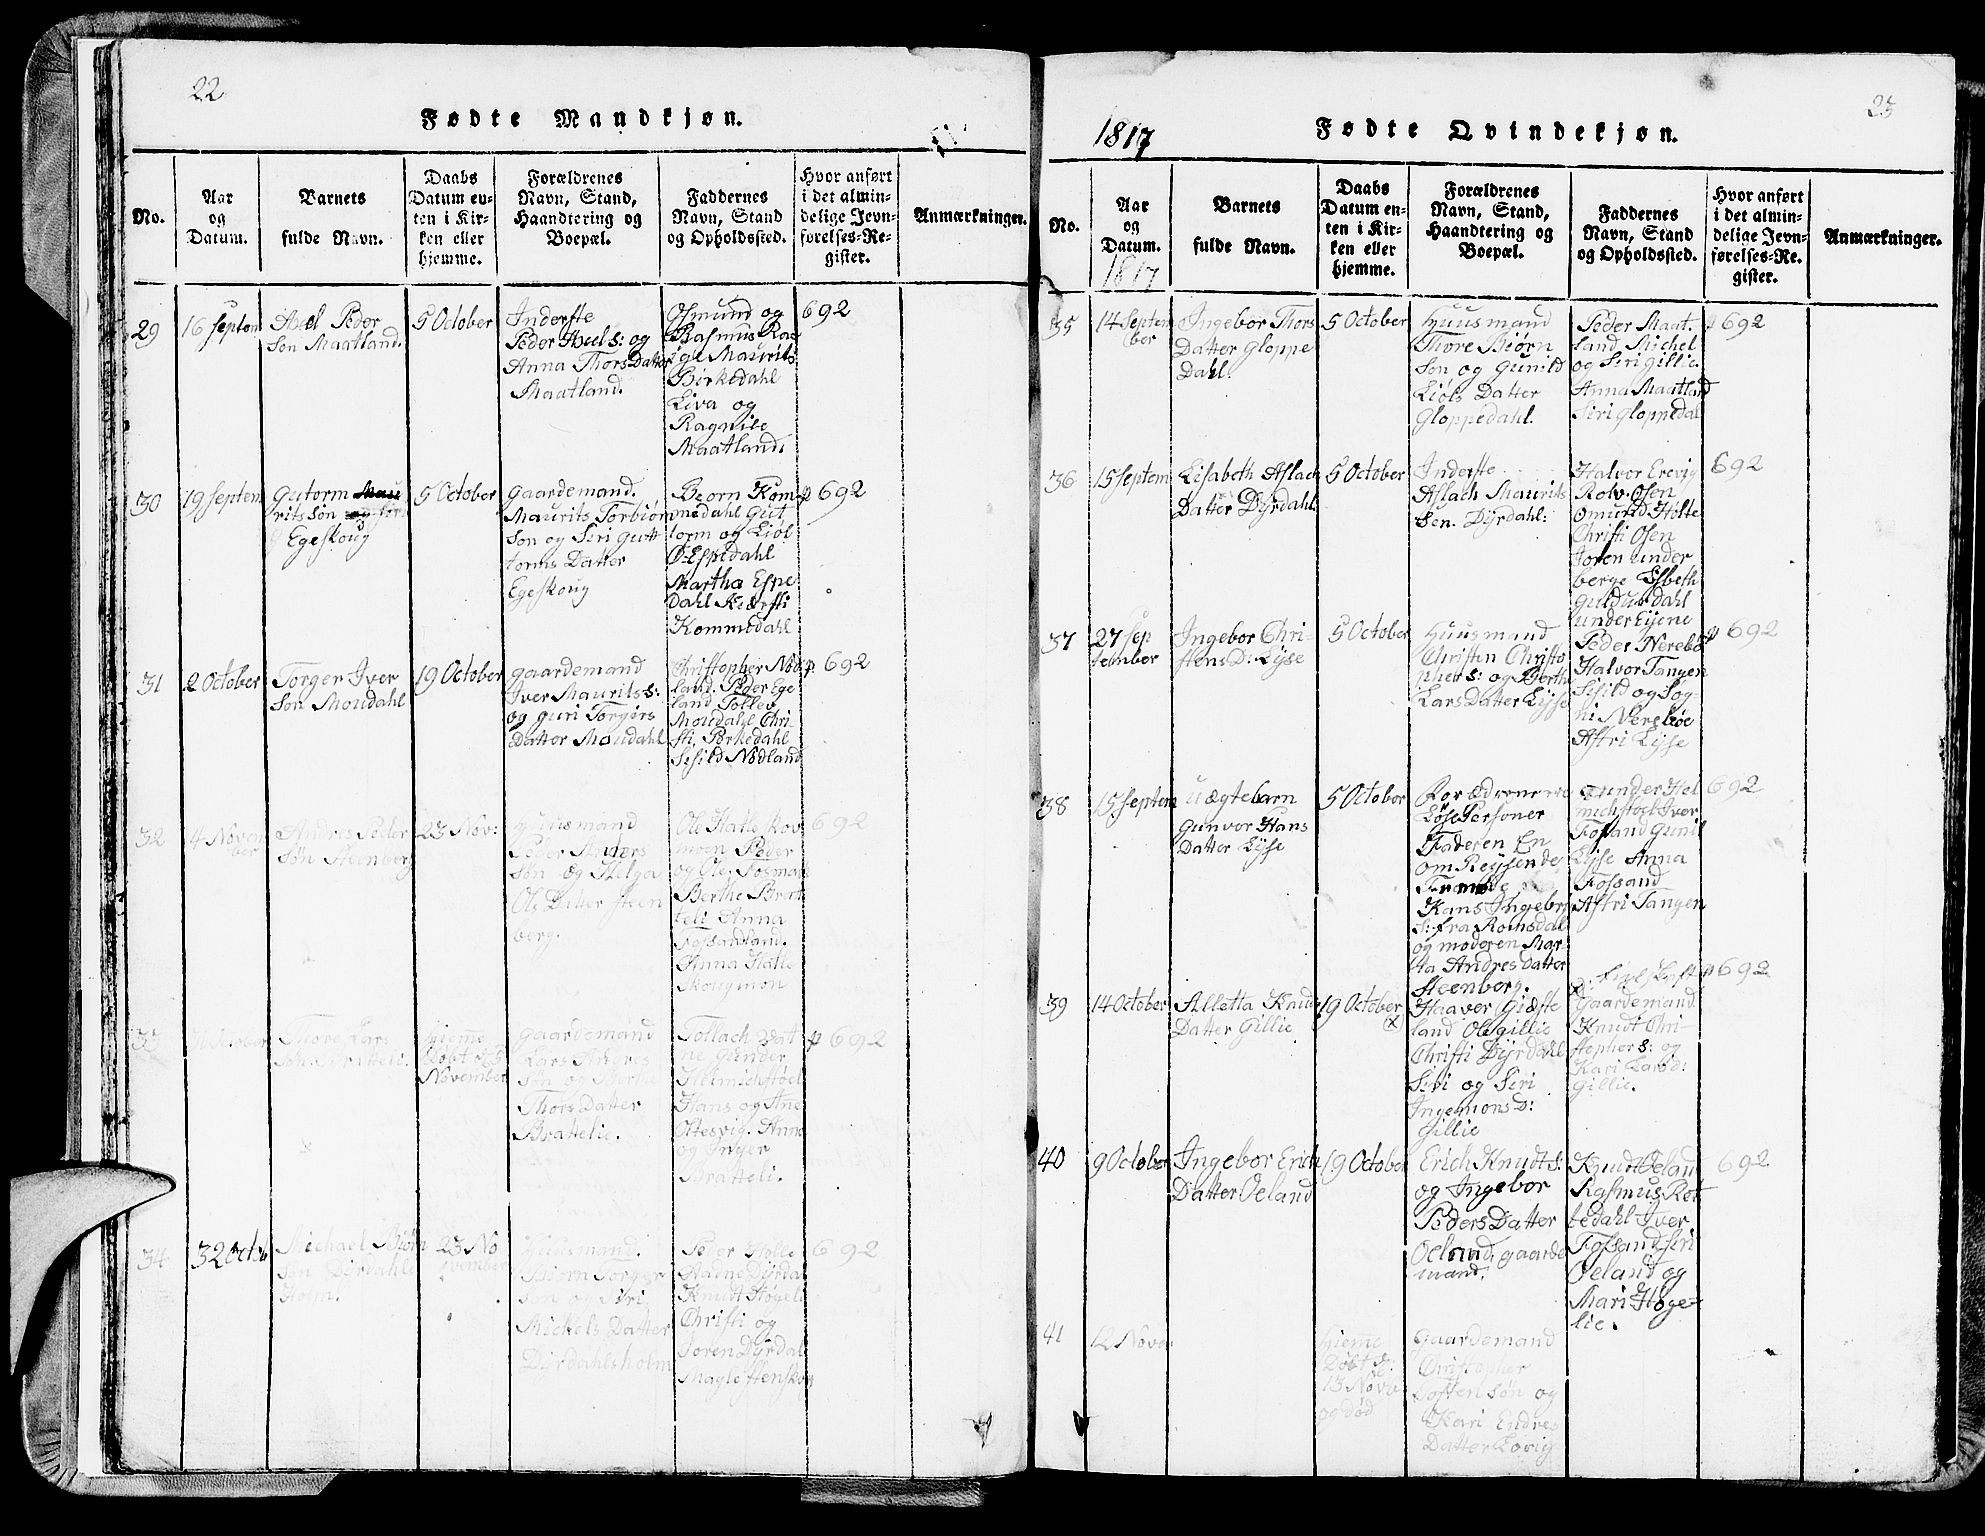 22
Fødte Mandkjøn.
No.
Aar
og
Datum.
Barnets
fulde Navn.
Daabs
Datum en-
ten i Kir-
ken eller
hjemme.
Forældrenes
Navn, Stand,
Haandtering og
Boepæl.
Faddernes
Navn, Stand
og Opholdssted.
Hvor anført
i det almin-
delige Jevn-
førelses-Re-
gister.
Anmærkninger.
29
16 Septem
Axel Peder
Søn Maatland.
5 October
Inderste
Peder Axels: og
Anna Thors Datter
Maatland.
Osmund og
Rasmus Rae
ge Maurits
Birkedahl
Liva og
Ragnile
Maatland
692
30
19 Septem
Gutorm Mau
rits søn
Egeskoug
5 October
Gaardemand.
Maurits Torbiørn
Søn og Siri Gutt
torms Datter
Egeskoug
Beorn Kom
medahl Gut
torm og Liøl
Espedahl
Martha Espe
Dahl Kiersti
Kommedahl
p 692
31
2 October
Torger Iver
Søn Moudahl
19 October
Gaardemand
Iver Maurits s:
og Guri Torgers
Datter Moudahl
Christopher Nød
land. Peder Ege
land Tollev
Moudahl Chri
sti, Perkedahl
Sisild Nødland
p. 692
32
4 Novem
ber
Andres Peder
Søn Steenberg
23 Nov:
Huusmand
Peder Anders
Søn og Helga
Ols Datter Steen
berg.
Ole Halle skov
moen Peder
og Ole, Fosman
Berthe Brat
teli Anna
Fossandland.
Anna Halle
Skougmon
692
33
October
Thore Lars
Søn Bratteli
hieme
Døbt 23
November
Gaardemand
Lars Anders
Søn og Berthe
Thors Datter
Brattelie.
Tollach Vat
ne Gunder
Helmichstøel
Hans og Ane
Oltesvig. Anna
og Inger
Bratteli.
p 692
34
32 Octob
Michael Biørn
Søn Dirdahls
Holm.
23 No
vember
Huusmand.
Biørn Torger
Søn og Siri
Mickels Datter
Dirdahlsholm
Peder Holle
Aadne Dyrdal
Knudt Høgeli
Christi og
Joren Dyrdal
Magle Stenskog
692
1817
25
Fødte Qvindekjøn.
No.
Aar
og
Datum.
1817
Barnets
fulde Navn.
Daabs
Datum en-
ten i Kir-
ken eller
hjemme.
Forældrenes
Navn, Stand,
Haandtering og
Boepæl.
Faddernes
Navn, Stand
og Opholdssted.
Hvor anført
i det almin-
delige Jevn-
førelses-Re-
gister.
Anmærkninger.
35
14 Septem
ber
Ingebor Thors
Datter Gloppe
Dahl.
5 October
Huusmand
Thore Biørn
Søn og Gunild
Liøls Datter
Gloppedahl.
Peder Maat.
land Michel
og Siri Gillie.
Anna Maatland
Siri Gloppedal
p 692
36
15 Septem
Lisabeth Aslach
Datter Dyrdahl
5 October
Inderste
Aslach Maurits
Sen. Dyrdahl:
Halvor Erevig
Rolv. Osen
Omund Holte
Christi Osen
Joren under
berge Lisbeth
Guldur dahl
under Eyene
692
37
27 Sep
tember
Ingebor Chri-
stens D: Lyse
5 October
Huusmand
Christen Christo
phers: og Berthe
Lars Datter Lyse
Peder Nerebø
Halvor Tangen
Sisild og Sog-
ni Nerebøe
Astri Lyse
p 692
38
15 Septem
Uægtebarn
Gunvor Hans
Datter Lyse
5 October
Forædrene ere
Løse Personer
Faderen En
om Reysende
Hans Ingebr
s: fra Romsdal
og moderen Mar
ta Andres datter
Steenberg.
Gunder Hel
michstøel Iver
Fossand Gunil
Lyse Anna
Fossand
Astri Tangen
692
39
14 October
Alletta Knuds
Datter Gillie
19 October
(x
Haaver Giedste
land Ole Gillie
Christi Dyrdahl
Siri og Siri
Ingemons D:
Gillie
Gaardemand
Knudt Chri-
stephers: og
Kari Lars D:
Gillie.
p 692
40
9 October
Ingebor Erich
Datter Oeland
19 October
Erich Knudts:
og Ingebor
Peders Datter
Oeland, gaarde
mand.
Knudt Oeland
Rasmus Røt
tedahl Iver
Fossand Siri
Oeland og
Mari Høge-
lie.
692
41
12 Novem
hieme
Døbt d:
13 Nov
og død
Gaardemand
Christopher
Søn og
Kari Endres
Datter Løvig